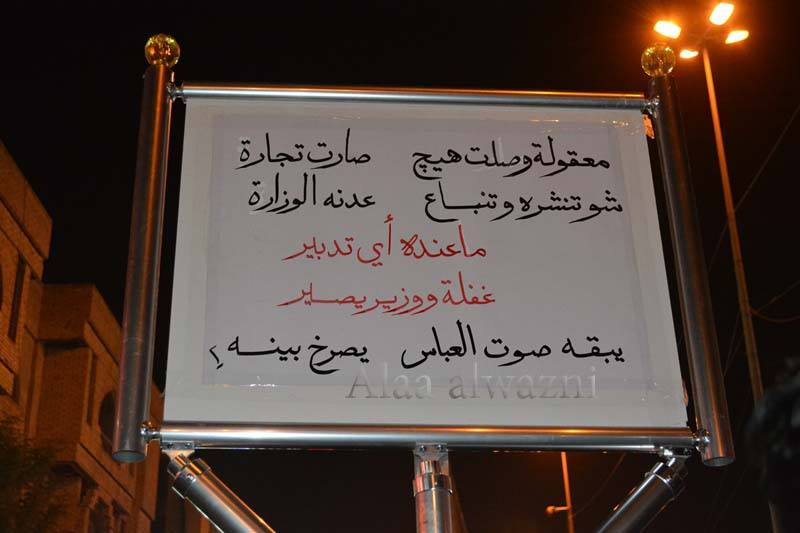 معقولة وصلت هيچ صارت تجارة
شو تنشره وتنباع عدنه الوزارة
ما عنده أي تدبير
غفلة ووزير يصير
يبقه صوت العباس يصرخ بينه
Alaa alwazni